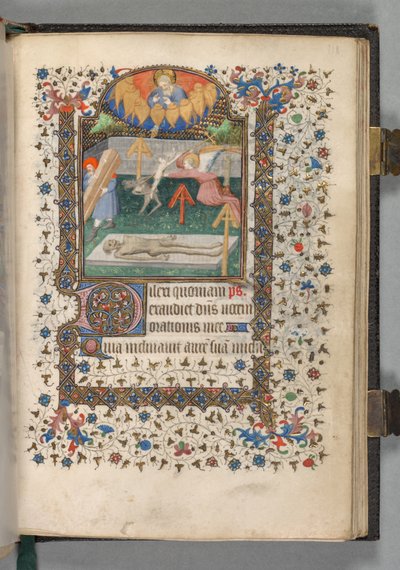 Dilexi quoniam ps.
exaudiet dn̄s uocem
orationis mee
Quia inclinauit aurē suā michi